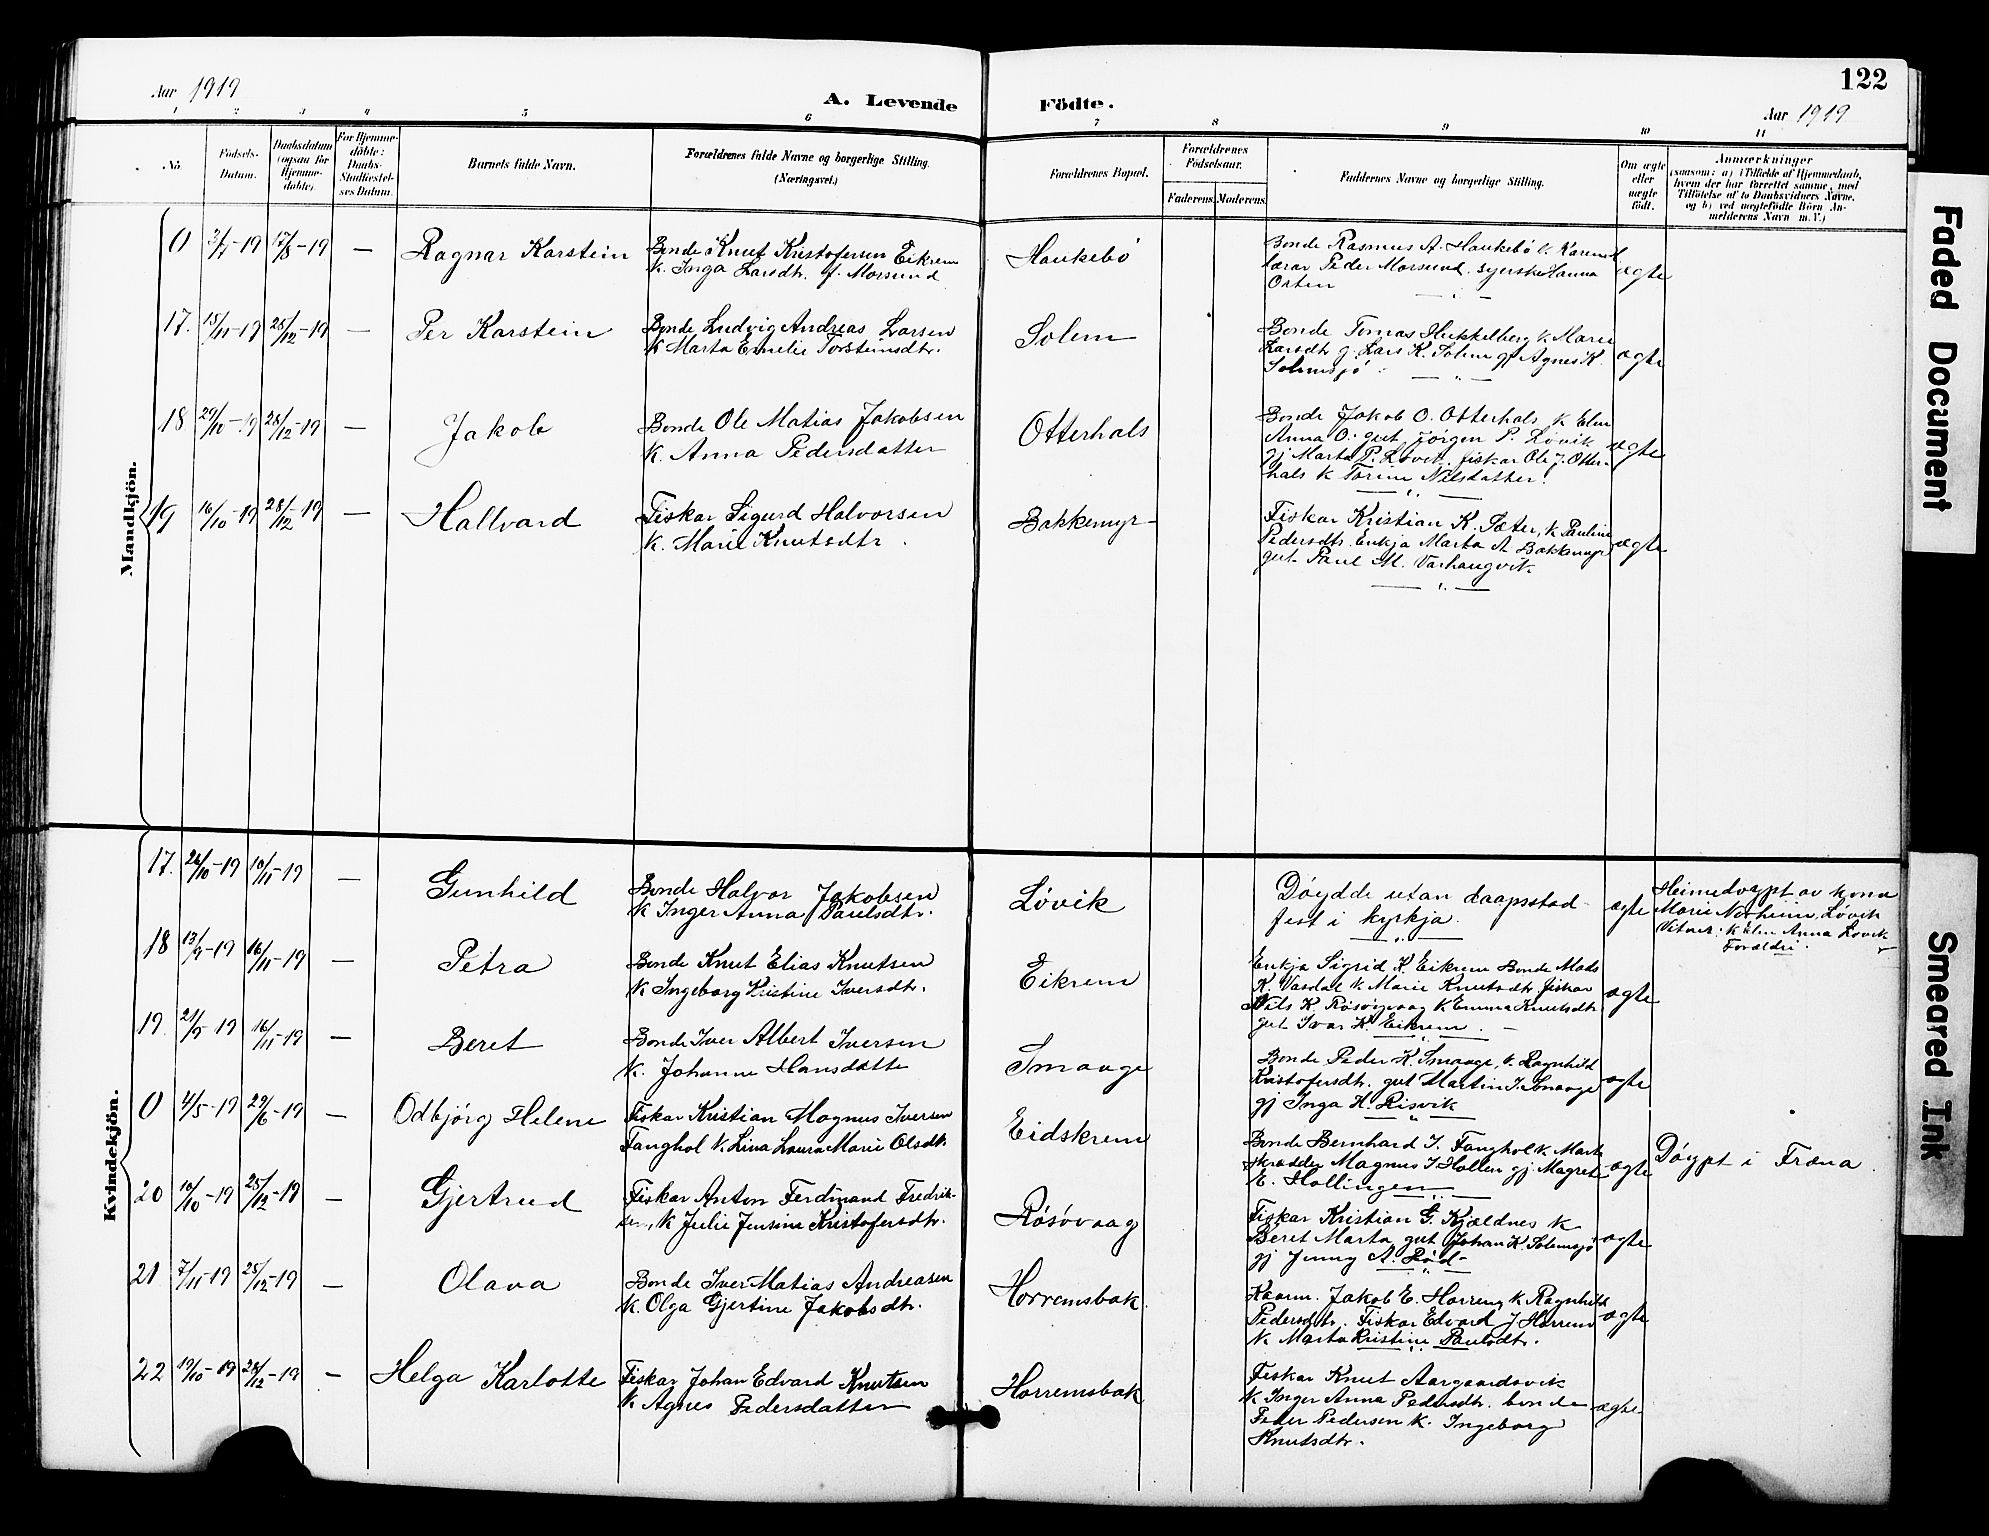 Aar 1919
A. Levende
Födte.
122
Aar 1919
1 2 3 4 5 6 7 8 9 10 11
No.
Födsels-
Datum.
Daabsdatum
(ogsaa for
Hjemme-
døbte).
For Hjemme-
döbte:
Daabs-
Stadfæstel-
ses Datum.
Barnets fulde Navn.
Forældrenes fulde Navne og borgerlige Stilling.
(Næringsvei.)
Forældrenes Bopæl.
Forældrenes
Födselsaar.
Faderens. Moderens.
Faddernes Navne og borgerlige Stilling.
Om ægte
eller
uægte
födt.
Anmærkninger
(saasom: a) i Tilfælde af Hjemmedaab,
hvem der har forrettet samme, med
Tilföielse af to Daabsvidners Navne.
og b) ved uægtefödte Börn An-
melderens Navn m. V.)
Mandkjön.
0 3/7-19 17/8-19 — Ragnar Karstein
Bonde Knut Kristofersen Eikrem
k. Inga Larsdtr. f. Morsund
Haukebö
Bonde Rasmus A. Haukebö
lærar Peder Morsund. syerske Hanna
Orten
ægte
17. 15/11-19 28/12-19 — Per Karstein
Bonde Ludvig Andreas Larsen
k Marta Emelie Torsteinsdtr.
Solem
Bonde Tomas Hukkelberg k. Marie
Larsdtr g. Lars K. Solem gj Agnes K.
Solemsjö
ægte
18. 29/10-19 28/12-19 — Jakob
Bonde Ole Matias Jakobsen
k. Anna Pedersdatter
Otterhals
Bonde Jakob O. Otterhals k Elen
Anna O. gut Jörgen P. Lövik
gj Marta P. Lövik. fiskar Ole J. Otter-
hals k Torine Nilsdatter.
ægte
19 16/10-19 28/12-19 — Hallvard
Fiskar Sigurd Halvorsen
k. Marie Knutsdtr.
Bakkemyr
Fiskar Kristian K. Sæter, k Pauline
Pedersdtr. Enkja Marta A Bakkemyr
gut Paul M. Varhaugvik
ægte
Kvindekjön.
17. 26/10-19 10/11-19 — Gunhild
Bonde Halvor Jakobsen
k Inger Anna Paulsdtr.
Lövik
Döydde utan daapsstad-
fest i kyrkja.
ægte
Heimedöypt av kona
Marie Norheim, Lövik
Vitner: k Elen Anna Lövik
Forældri.
18 13/9-19 16/11-19 — Petra
Bonde Knut Elias Knutsen
k Ingeborg Kristine Iversdtr.
Eikrem
Enkja Sigrid K. Eikrem Bonde Mads
K. Vasdal k Marie Knutsdtr. fiskar
Nils K. Rösövaag k Emma Knutsdtr
gut Ivar K. Eikrem.
ægte
19. 21/9-19 16/11-19 — Beret
Bonde Iver Albert Iversen
k. Johanne Hansdatter
Smaage
Bonde Peder K. Smaage, k. Ragnhild
Kristofersdtr. gut Martin I. Smaage
gj Inga H. Risvik
ægte
0 4/5-19 29/6-19 — Odbjörg Helene
Fiskar Kristian Magnus Iversen
Fanghol k. Lina Laura Marie Olsdtr
Eidskrem
Bonde Bernhard I. Fanghol k. Marta
skrædder Magnus I Hollen gj Magret
E. Hollingen
ægte
Döypt i Fræna
20 10/10-19 25/12-19 — Gjertrud
Fiskar Anton Ferdinand Fredrik-
sen, k Julie Jensine Kristofersdtr.
Rösövaag
Fiskar Kristian G. Kjældnes k
Beret Marta gut Johan K. Solemsjö
gj Jenny A. Röd
ægte
21 7/11-19 25/12-19 — Olava
Bonde Iver Matias Andreasen
k. Olga Gjertine Jakobsdtr.
Horremsbak.
Kaarm. Jakob E. Horrem k Ragnhild
Pedersdtr. Fiskar Edvard J Horrem
k. Marta Kristine Paulsdtr.
ægte
22 19/10-19 28/12-19 — Helga Karlotte
Fiskar Johan Edvard Knutsen
k Agnes Pedersdatter
Horremsbak
Fiskar Knut Aargaardsvik
k Inger Anna Pedersdtr. bonde
Peder Pedersen k. Ingeborg
Knutsdtr.
ægte
Faded Document
Smeared Ink